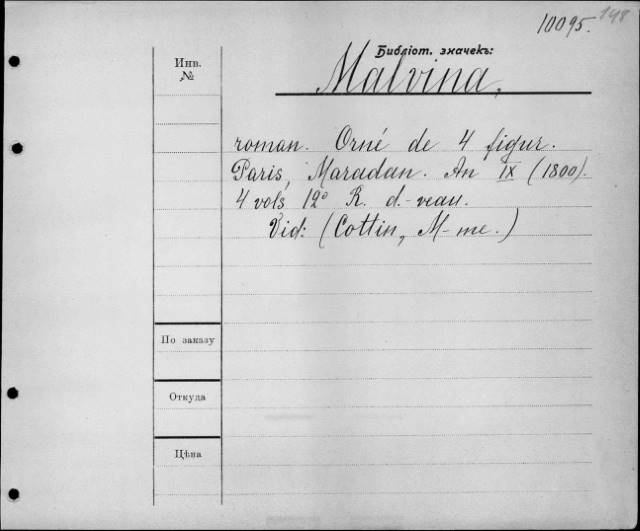 10095. 148
Библіот. значекъ:
Инв.
№
Malvina,
roman. Orné de 4 figur.
Paris, Maradan. An IX (1800).
4 vols 12° R. d.-veau.
Vid: (Cottin, M-me.)
По заказу
Откуда
Цѣна